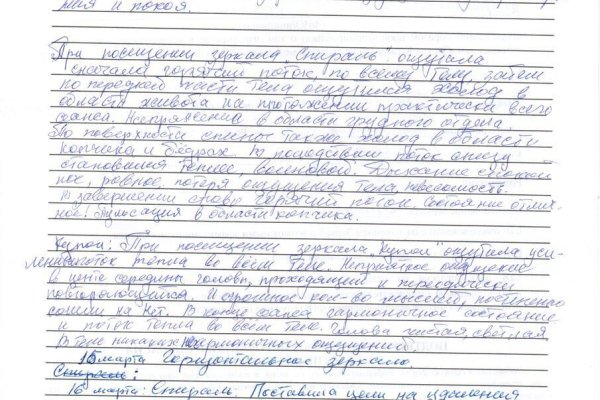 мия и покоя.
При посещении зеркала "Спираль" ощутила
сначала горячий поток, по всему телу, затем
по передней части тела ощущался холод в
области живота на протяжении практически всего
сеанса. Напряжение в области грудного отдела.
По поверхности спины также холод в области
копчика и бёдрах. В последствии поток снизу
становился теплее, волновой. Дыхание спокой
ное, ровное, потеря ощущения тела, невесомость.
В завершении снова горячий поток. Состояние отлич-
ное. Пульсация в области копчика.
Купол: При посещении зеркала "Купол" ощутила уси-
ление поток тепла во всём теле. Неприятное ощущение
в центе середины головы, проходящий и переодически
повторяющийся. И огромное кол-во мыслей, постепенно
сошли на нет. В конце сеанса гармоничное состояние
и поток тепла во всём теле. Голова чистая, светлая,
в теле никаких не гармоничных ощущений.
15 марта Горизонтальное зеркало.
Спираль:
16 марта: Спираль. Поставила цели на удаления